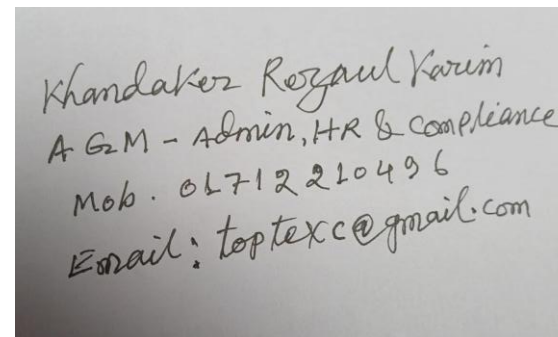 Khandaker Rezaul Karim
AGM - Admin, HR & Compliance
Mob. 01712210496
Email: toptexc@gmail.com